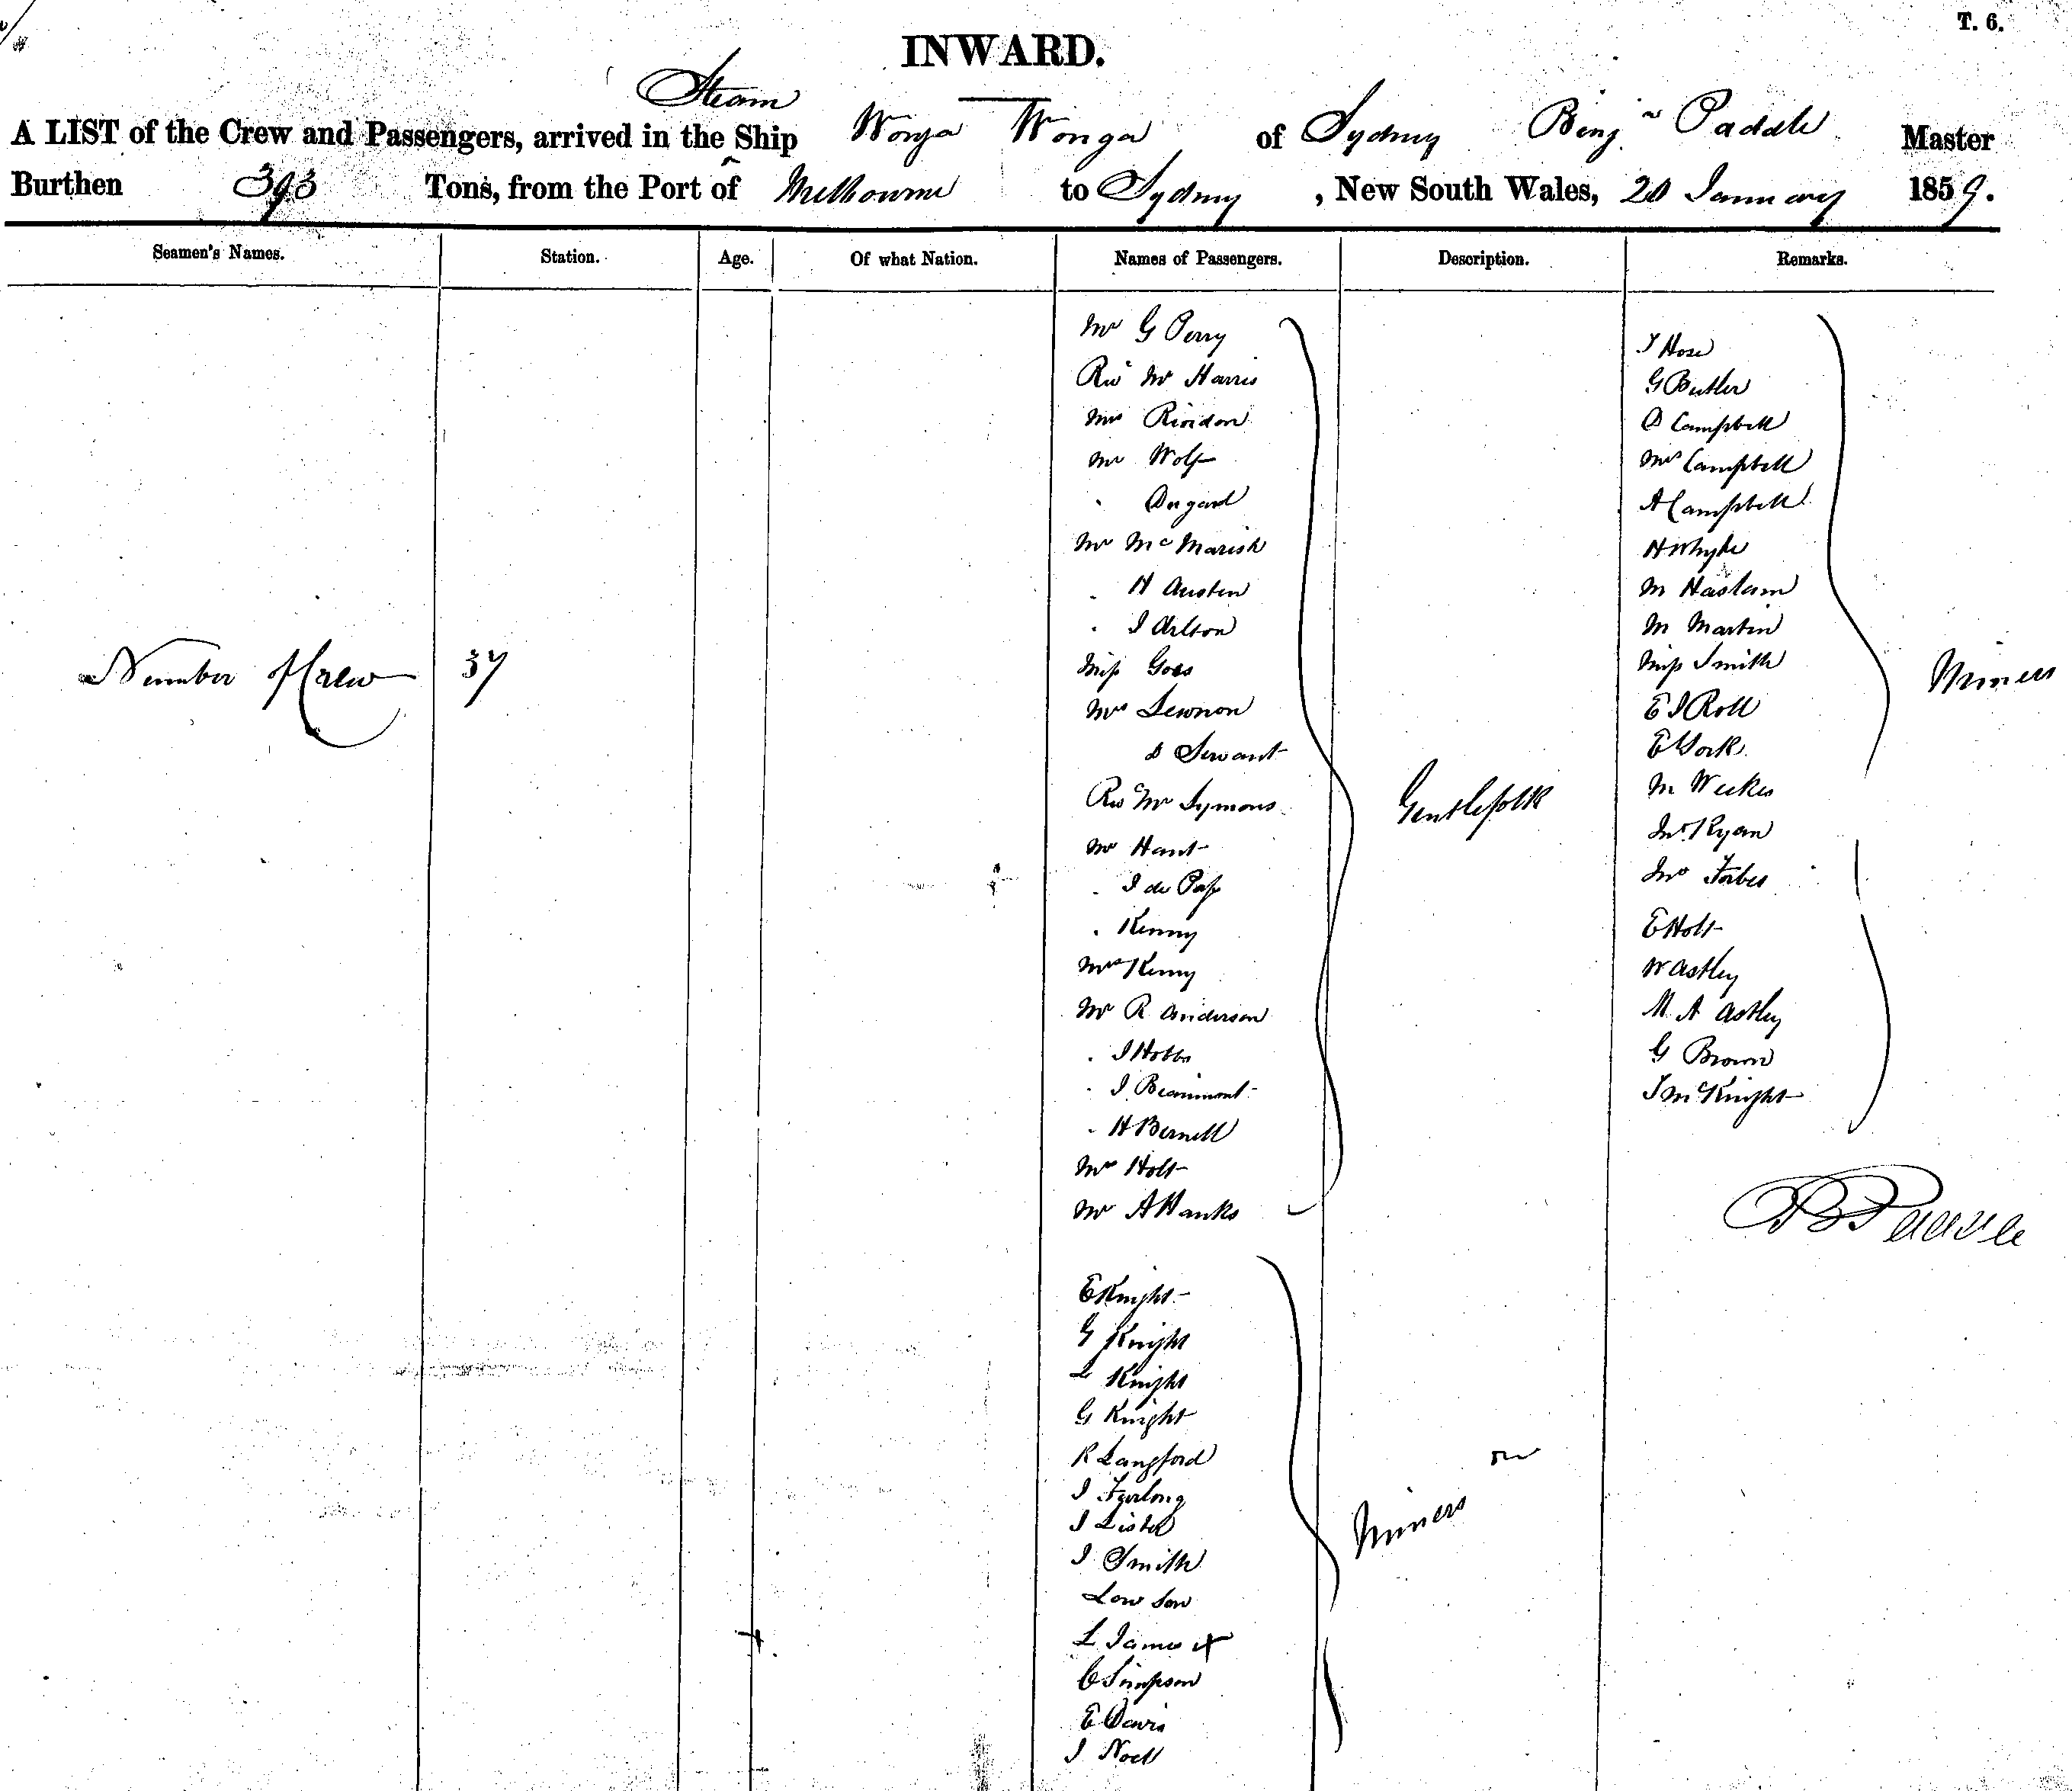 T. 6.
INWARD.
Steam
A LIST of the Crew and Passengers, arrived in the Ship Wonga Wonga of Sydney Benjn Paddle Master
Burthen 393 Tons, from the Port of Melbourne to Sydney, New South Wales, 20 January 1859.
Seamen's Names. Station. Age. Of what Nation. Names of Passengers. Description. Remarks.
Number of Crew 37
Mr G Perry
Revd Mr Harris
Mrs Riordon
Mr Wolf
" Dugard
Mr McMarish
" H Austen
" I Arlton
Miss Goes
Mrs Lewnon
& Servant
Rev Mr Symons
Mr Hant
" I de Pass
" Kenny
Mrs Kenny
Mr R Anderson
" I Hobbs
" I Beaumont
" H Bernell
Mrs Holt
Mr A Hanks
Gentlefolk
E Knight
G Knight
L Knight
G Knight
R Langford
I Furlong
I Lister
I Smith
Low Son
L James
C Simpson
E Davis
I Noell
Miners
J Hose
G Butler
D Campbell
Mrs Campbell
A Campbell
H Whyte
M Haslam
M Martin
Miss Smith
E I Roll
E York
M Weekes
Jno Ryan
Jno Forbes
E Holt
W Astley
M A Astley
G Brown
J McKnight
Miners